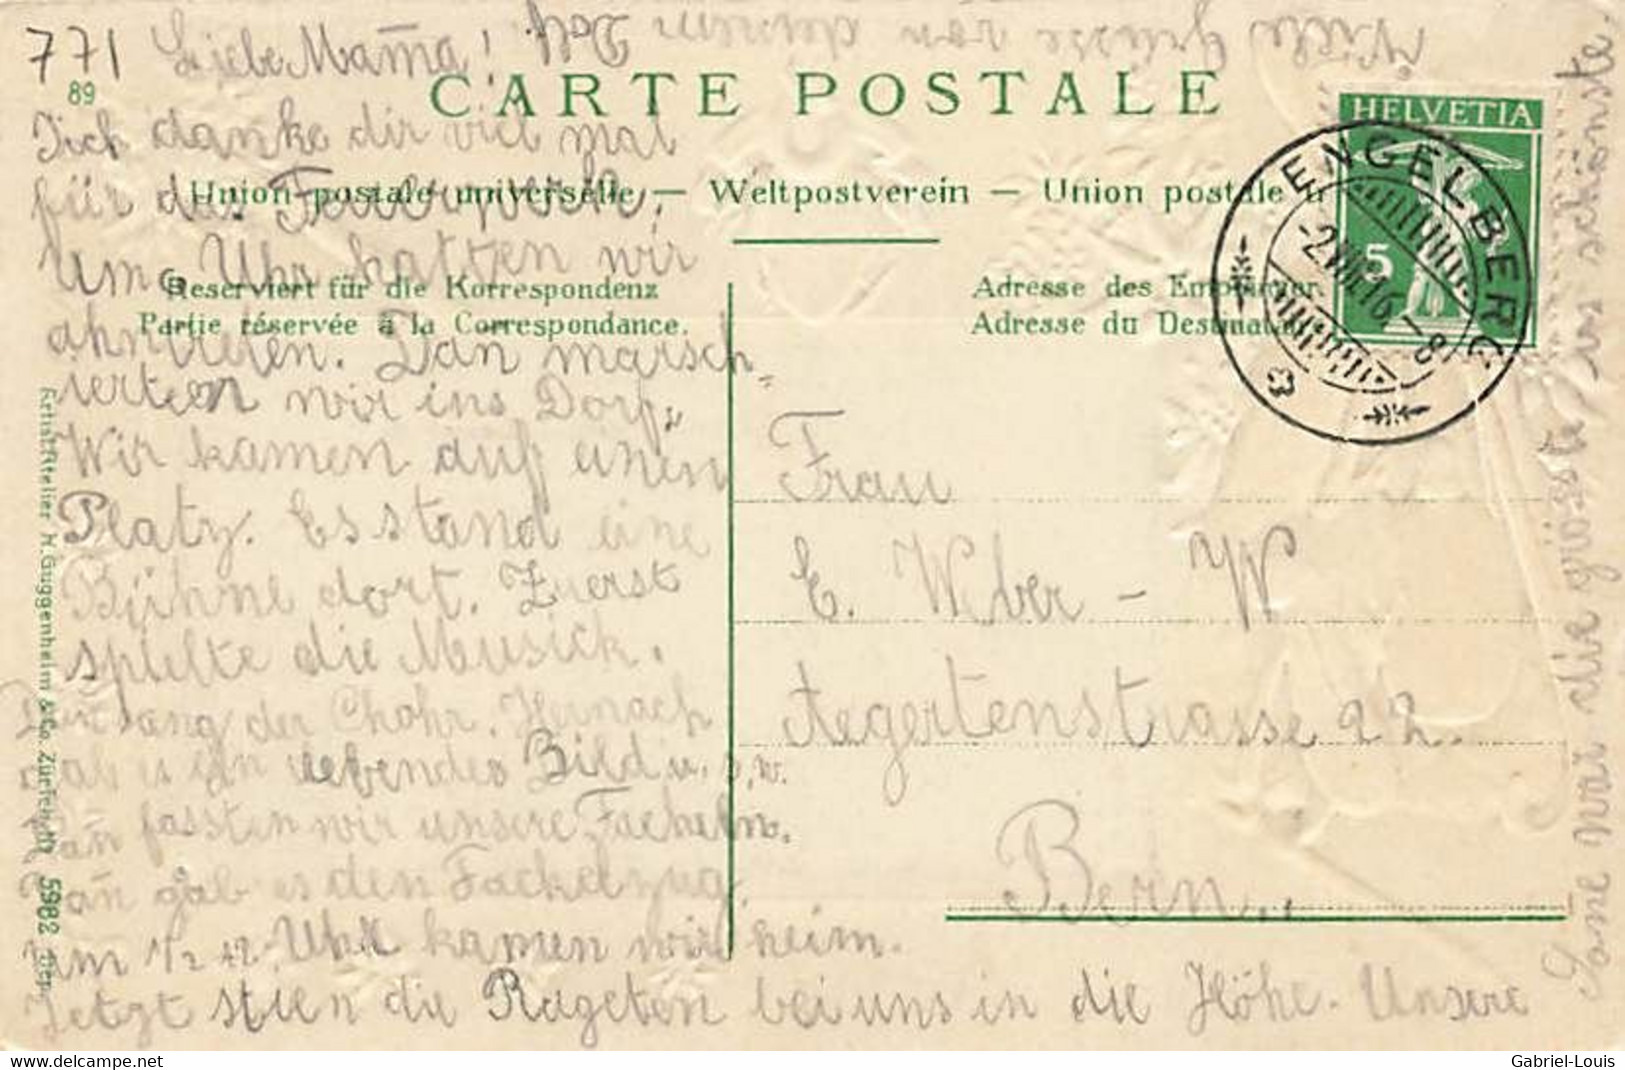 771 Liebe Mama!
89
CARTE POSTALE
Union postale universelle — Weltpostverein — Union postale u
Reserviert für die Korrespondenz
Partie réservée à la Correspondance.
Adresse des Empfängers
Adresse du Destinataire
HELVETIA
5
ENGELBERG
-2.VIII.16.-8
Ich danke dir viel mal
für das Feuerwerk.
Um Uhr hatten wir
ahntreten. Dan marsch-
ierteen wir ins Dorf.
Wir kamen auf einen
Platz. Es stand eine
Bühne dort. Zuerst
spielte die Musick.
sang der Chohr. Hernach
gab es ein lebendes Bild u.s.w.
Dan̄ fassten wir unsere Fackeln.
Dan̄ gab es den Fackelzug.
um 1/2 Uhr kamen wir heim.
Jetzt stien die Rageten bei uns in die Höhe. Unsere
Sone war die grösste u. schönste.
Viele Grüsse von deinem
Frau
E. Weber - W
Aegertenstrasse 22.
Bern.
Artist. Atelier H. Guggenheim & Co. Zürich. 5982 Dep.
www.delcampe.net
Gabriel-Louis